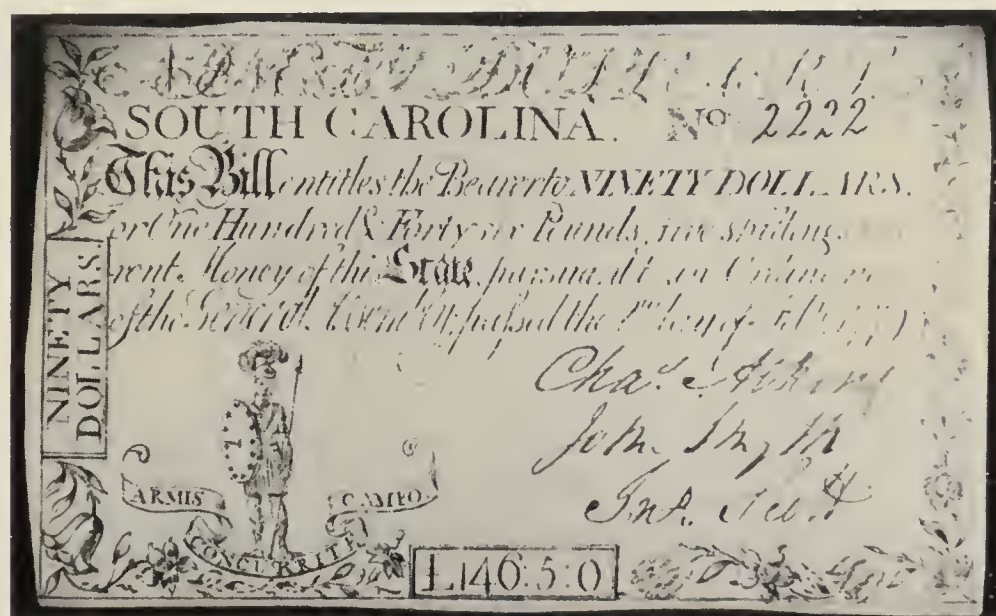 SOUTH CAROLINA. No. 2222
This Bill entitles the Bearer to NINETY DOLLARS.
or One Hundred & Forty six Pounds, five shillings
rent Money of this State, pursuant
of the General Assembly, passed the
NINETY
DOLLARS
Chas. Atkins
John Smyth
Jno. Scott
ARMIS CAMPO
CONCURRITE
£146:5:0